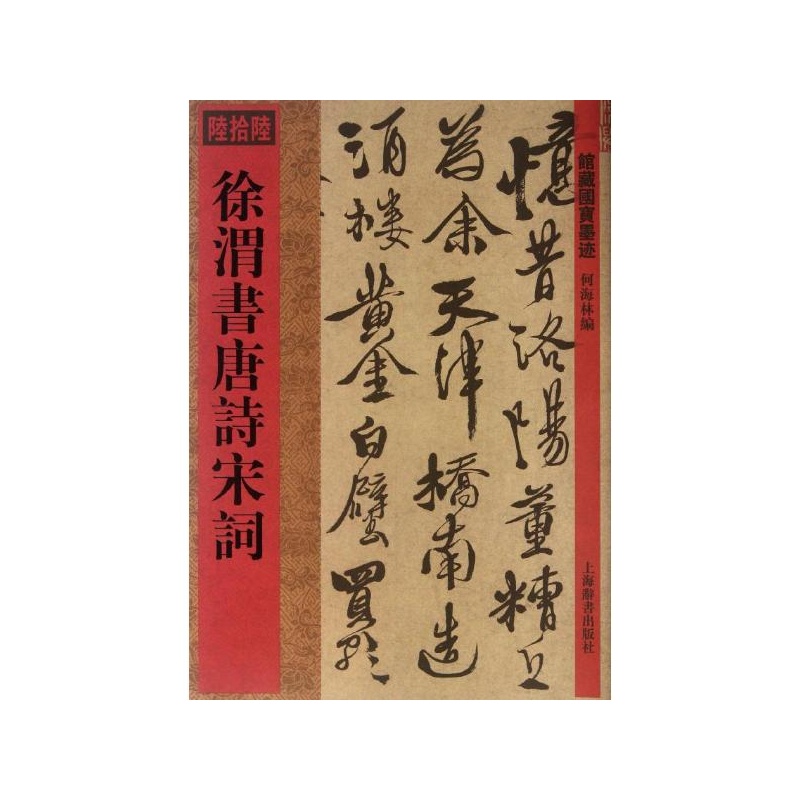 陸拾陸
徐渭書唐詩宋詞
憶昔洛陽董糟丘
為余天津橋南造
酒楼黄金白璧買歌
館藏國寶墨迹
何海林編
上海辭書出版社